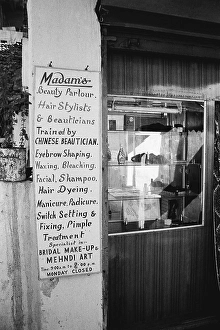 Madam's
Beauty Parlour.
Hair Stylists
& Beauticians
Trained by
CHINESE BEAUTICIAN.
Eyebrow Shaping.
Waxing, Bleaching.
Facial, Shampoo.
Hair Dyeing.
Manicure, Pedicure.
Switch Setting &
Fixing, Pimple
Treatment
Specialist in
BRIDAL MAKE-UP &
MEHNDI ART
Time 9:00 a.m. to 8:00 p.m.
MONDAY CLOSED